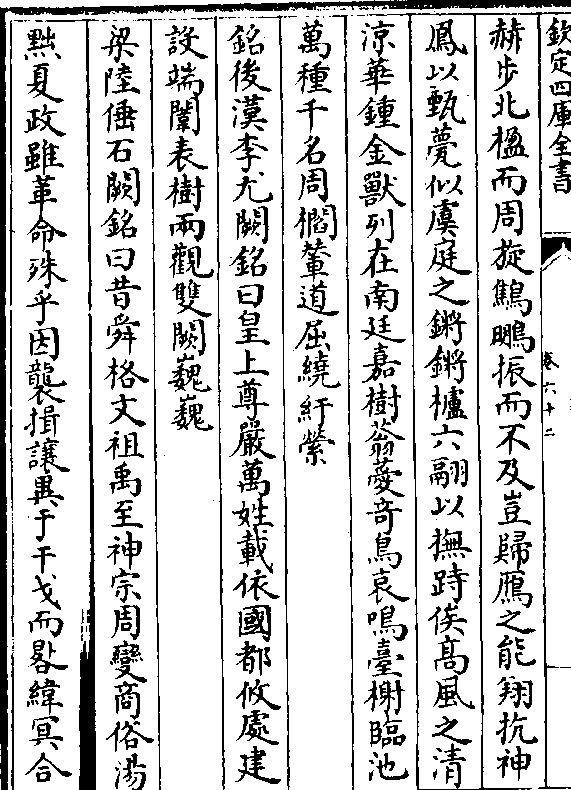 欽定四庫全書
卷六十二
赫步北楹而周旋鷦鵬振而不及豈歸鴈之能翔抗神
鳳以甄甍似虞庭之鏘鏘櫨六翮以撫跱俟高風之清
涼華鍾金獸列在南廷嘉樹蓊薆奇鳥哀鳴臺榭臨池
萬種千名周櫩輦道屈繞紆縈
銘後漢李尤闕銘曰皇上尊嚴萬姓載依國都攸處建
設端闈表樹兩觀雙闕巍巍
梁陸倕石闕銘曰昔舜格文祖禹至神宗周變商俗湯
黜夏政雖革命殊乎因襲揖讓異于干戈而晷緯冥合